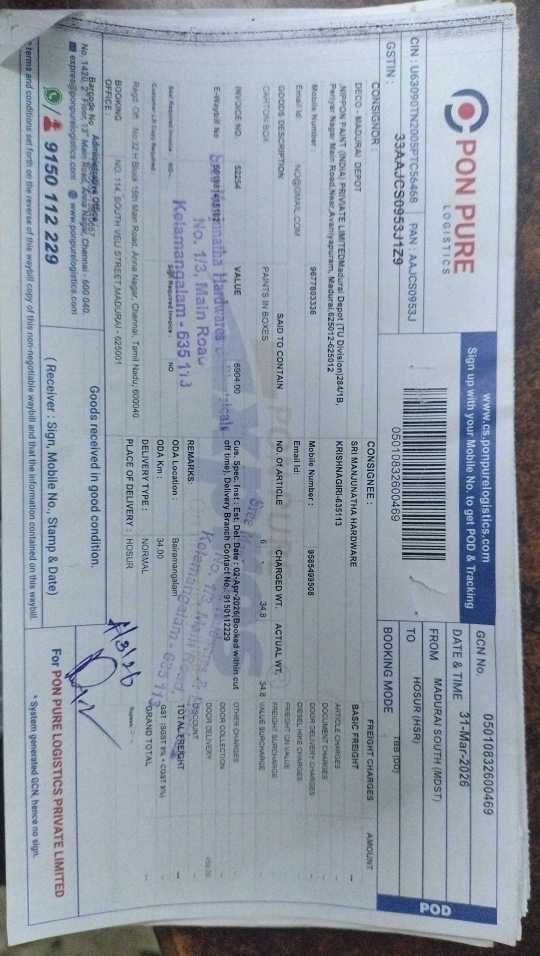 PON PURE
LOGISTICS
www.cs.ponpurelogistics.com
Sign up with your Mobile No. to get POD & Tracking
CIN : U63090TN2005PTC56468 PAN : AAJCS0953J
GSTIN : 33AAJCS0953J1Z9
05010832600469
GCN No 05010832600469
DATE & TIME 31-Mar-2026
FROM MADURAI SOUTH (MDST)
TO HOSUR (HSR)
BOOKING MODE TBB (DD)
POD
CONSIGNOR :
DECO - MADURAI DEPOT
NIPPON PAINT (INDIA) PRIVATE LIMITEDMadurai Depot (TU Division)284/1B,
Periyar Nagar Main Road,Near,Avaniyapuram, Madurai,625012-625012
Mobile Number : 9677803336
Email Id: NO@GMAIL.COM
CONSIGNEE :
SRI MANJUNATHA HARDWARE
KRISHNAGIRI-635113
Mobile Number : 9585499508
Email Id:
GOODS DESCRIPTION SAID TO CONTAIN NO. Of ARTICLE CHARGED WT. ACTUAL WT.
CARTON BOX PAINTS IN BOXES 6 34.8 34.8
INVOICE NO. 50254 VALUE 6904.00
E-Waybill No.
Seal Required Invoice : NO
Sign Required Invoice : NO
Customer LR Copy Required
Cus. Spec. Inst : Est. Del. Date : 02-Apr-2026(Booked within cut
off time), Delivery Branch Contact No.: 9150112229
REMARKS:
ODA Location : Bairamangalam
ODA Km : 34.00
DELIVERY TYPE : NORMAL
PLACE OF DELIVERY : HOSUR
FREIGHT CHARGES AMOUNT
BASIC FREIGHT -
ARTICLE CHARGES -
DOCUMENT CHARGES -
DOOR DELIVERY CHARGES -
DIESEL HIKE CHARGES -
FREIGHT ON VALUE -
FREIGHT SURCHARGE -
VALUE SURCHARGE -
OTHER CHARGES -
DOOR COLLECTION -
DOOR DELIVERY
DISCOUNT
TOTAL FREIGHT -
GST (SGST 9% + CGST 9%) -
GRAND TOTAL -
Hardwares
No. 1/3, Main Road
Kelamangalam - 635 113
Kelamangalam - 635 113
Regd. Off : No.32 H Block 15th Main Road, Anna Nagar, Chennai, Tamil Nadu, 600040
BOOKING OFFICE : NO. 114, SOUTH VELI STREET,MADURAI - 625001
Administrative Office
No. 1420, 2nd Floor, 13th Main Road, Anna Nagar, Chennai - 600 040.
express@ponpurelogistics.com www.ponpurelogistics.com
9150 112 229
Goods received in good condition.
( Receiver : Sign, Mobile No., Stamp & Date)
For PON PURE LOGISTICS PRIVATE LIMITED
* System generated GCN, hence no sign.
terms and conditions set forth on the reverse of this waybill copy of this non-negotiable waybill and that the information contained on this waybill